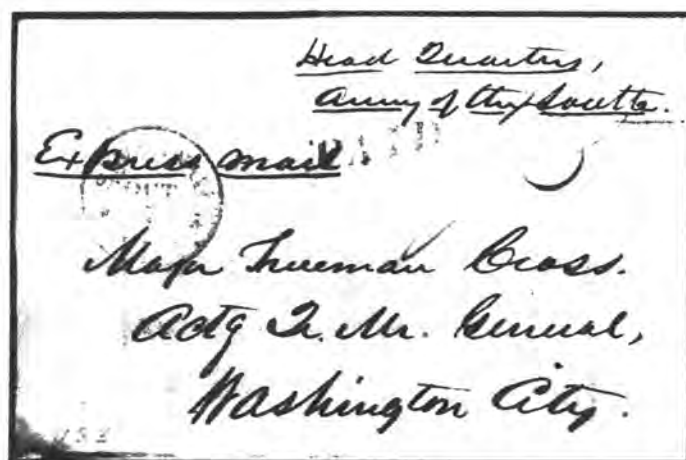 Head Quarters,
Army of the South.
Express Mail.
Major Trueman Cross.
Actg Qr. Mr. General,
Washington City.